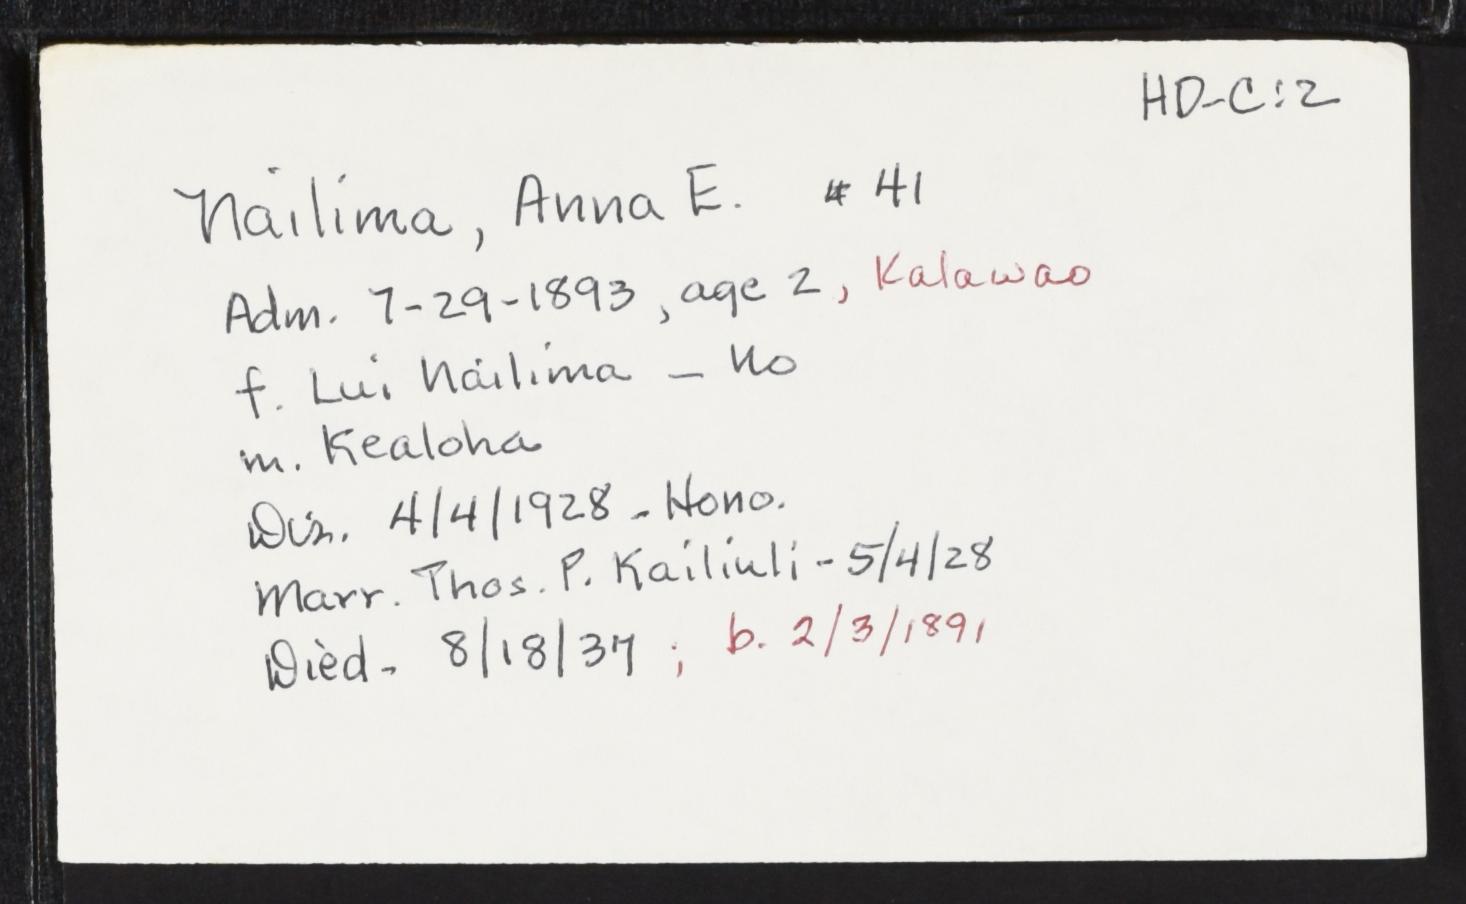 HD-C:2
Nailima, Anna E. # 41
Adm. 7-29-1893, age 2, Kalawao
f. Lui Nailima - no
m. Kealoha
Dis. 4/4/1928 - Hono.
Marr. Thos. P. Kailiuli - 5/4/28
Died - 8/18/37 ; b. 2/3/1891